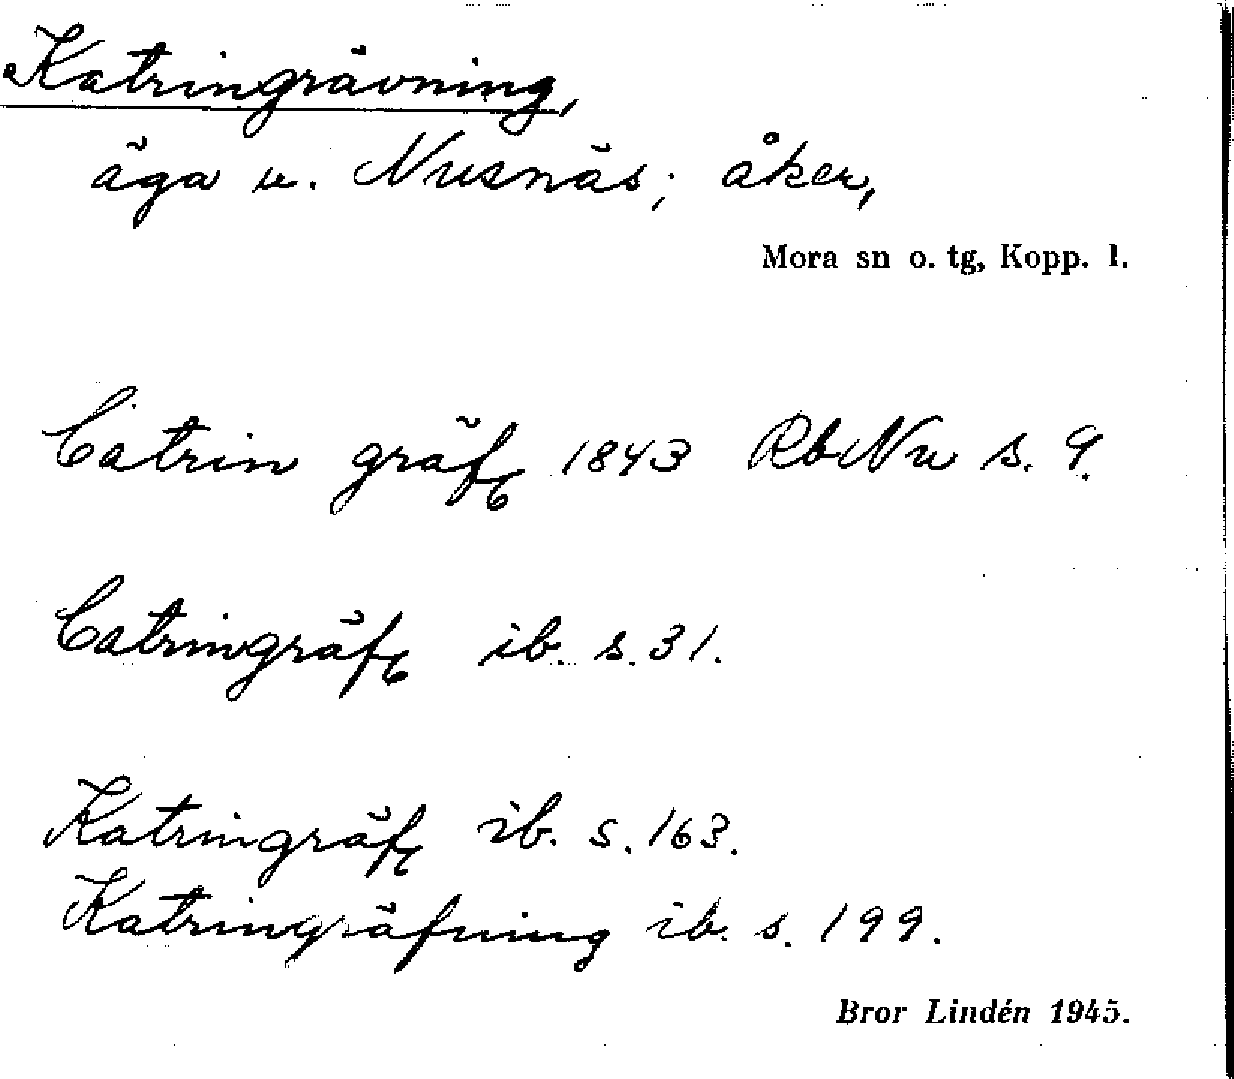 Katringrävning,
äga v. Nusnäs; åker,
Mora sn o. tg, Kopp. l.
Catrin gräfg 1843 RbNu s. 9.
Catringräfg ib. s. 31.
Katringräfg ib. s. 163.
Katringräfning ib. s. 199.
Bror Lindén 1945.